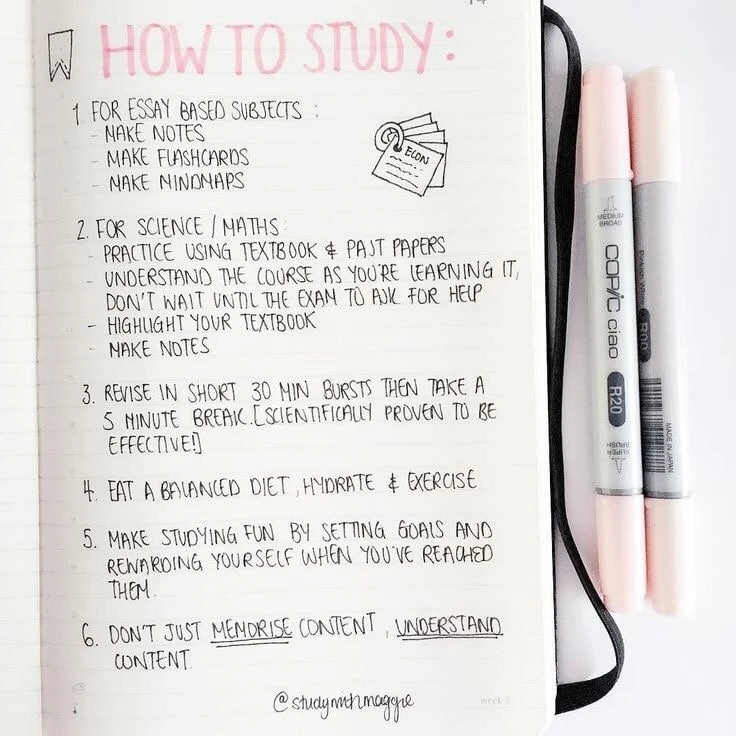 HOW TO STUDY:
1. FOR ESSAY BASED SUBJECTS :
- MAKE NOTES
- MAKE FLASHCARDS
- MAKE MINDMAPS
ECON
2. FOR SCIENCE / MATHS:
- PRACTICE USING TEXTBOOK & PAST PAPERS
- UNDERSTAND THE COURSE AS YOU'RE LEARNING IT,
DON'T WAIT UNTIL THE EXAM TO ASK FOR HELP
- HIGHLIGHT YOUR TEXTBOOK
- MAKE NOTES
3. REVISE IN SHORT 30 MIN BURSTS THEN TAKE A
5 MINUTE BREAK.[SCIENTIFICALLY PROVEN TO BE
EFFECTIVE!]
4. EAT A BALANCED DIET, HYDRATE & EXERCISE
5. MAKE STUDYING FUN BY SETTING GOALS AND
REWARDING YOURSELF WHEN YOU'VE REACHED
THEM.
6. DON'T JUST MEMORISE CONTENT, UNDERSTAND
CONTENT.
@studywithmaggie
week 3
MEDIUM
BROAD
COPIC ciao
R20
SUPER
BRUSH
R00
MADE IN JAPAN